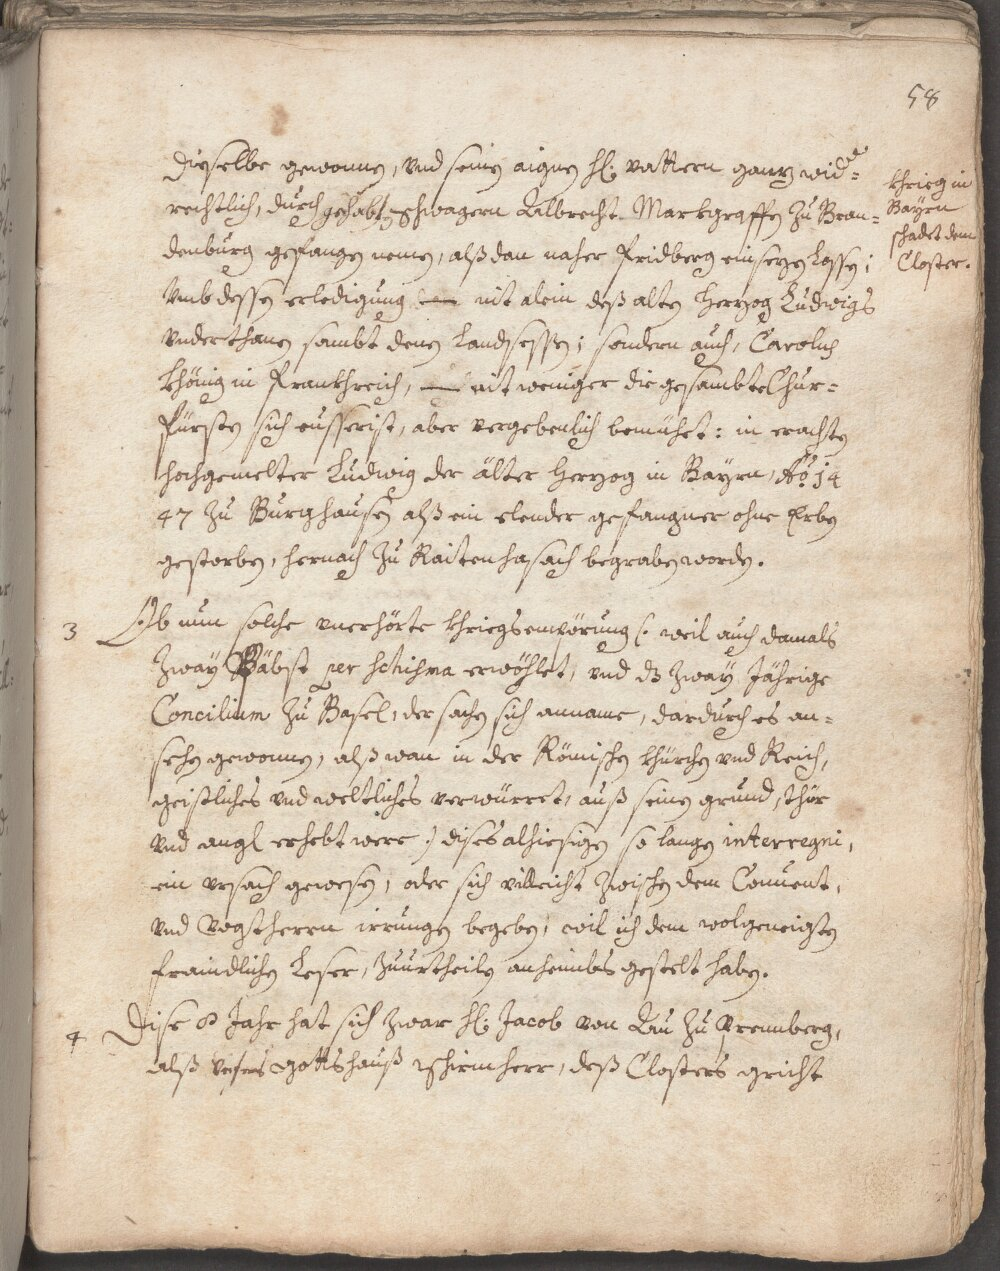 58
dieselbe gewonnen, vnd seinen aignen hl: vattern ganz wid=
rechtlich, durch gehabten schwagern Albrecht Markgraffen zu Bran=
denburg gefangen nemen, alß dan naher Fridberg einsezen lassen;
Vmb dessen erledigung — nit alein deß alten Herzog Ludwigs
vnderthanen sambt denen Landsessen; sondern auch, Carolus
khönig in Frankhreich, — nit weniger die gesambte Chur=
fürsten sich eusserist, aber vergebenlich bemühet: in erachten
hochgemelter Ludwig der älter Herzog in Bayrn, Ao: 14
47 zu Burghausen alß ein elender gefangner ohne Erben
gestorben, hernach zu Raitenhasach begraben worden.
khrieg in
Bayrn
schadet dem
Closter.
3 Ob nun solche vnerhörte khriegsempörung (: weil auch damals
zway Bäbst per schisma erwöhlet, vnd dz zway Jährige
Concilium zu Basel, der sachen sich anname, dardurch es an=
sehen gewonnen, alß wan in der Römischen khürchen vnd Reich,
geistliches vnd weltliches verwürret, auß seinen grund, thür
vnd angl erhebt were :) dises alhiesigen so langen interregni,
ein vrsach gewesen, oder sich villeicht zwischen dem Conuent,
vnd Vogtherrn irrungen begeben, will ich dem wolgeneigten
fraindlichen Leser, zuurtheilen anheimbs gestelt haben.
4 Dise 8 Jahr hat sich zwar hl: Jacob von Au zu Prennberg,
alß vnsers Gottshauß schirmherr, deß Closters gricht